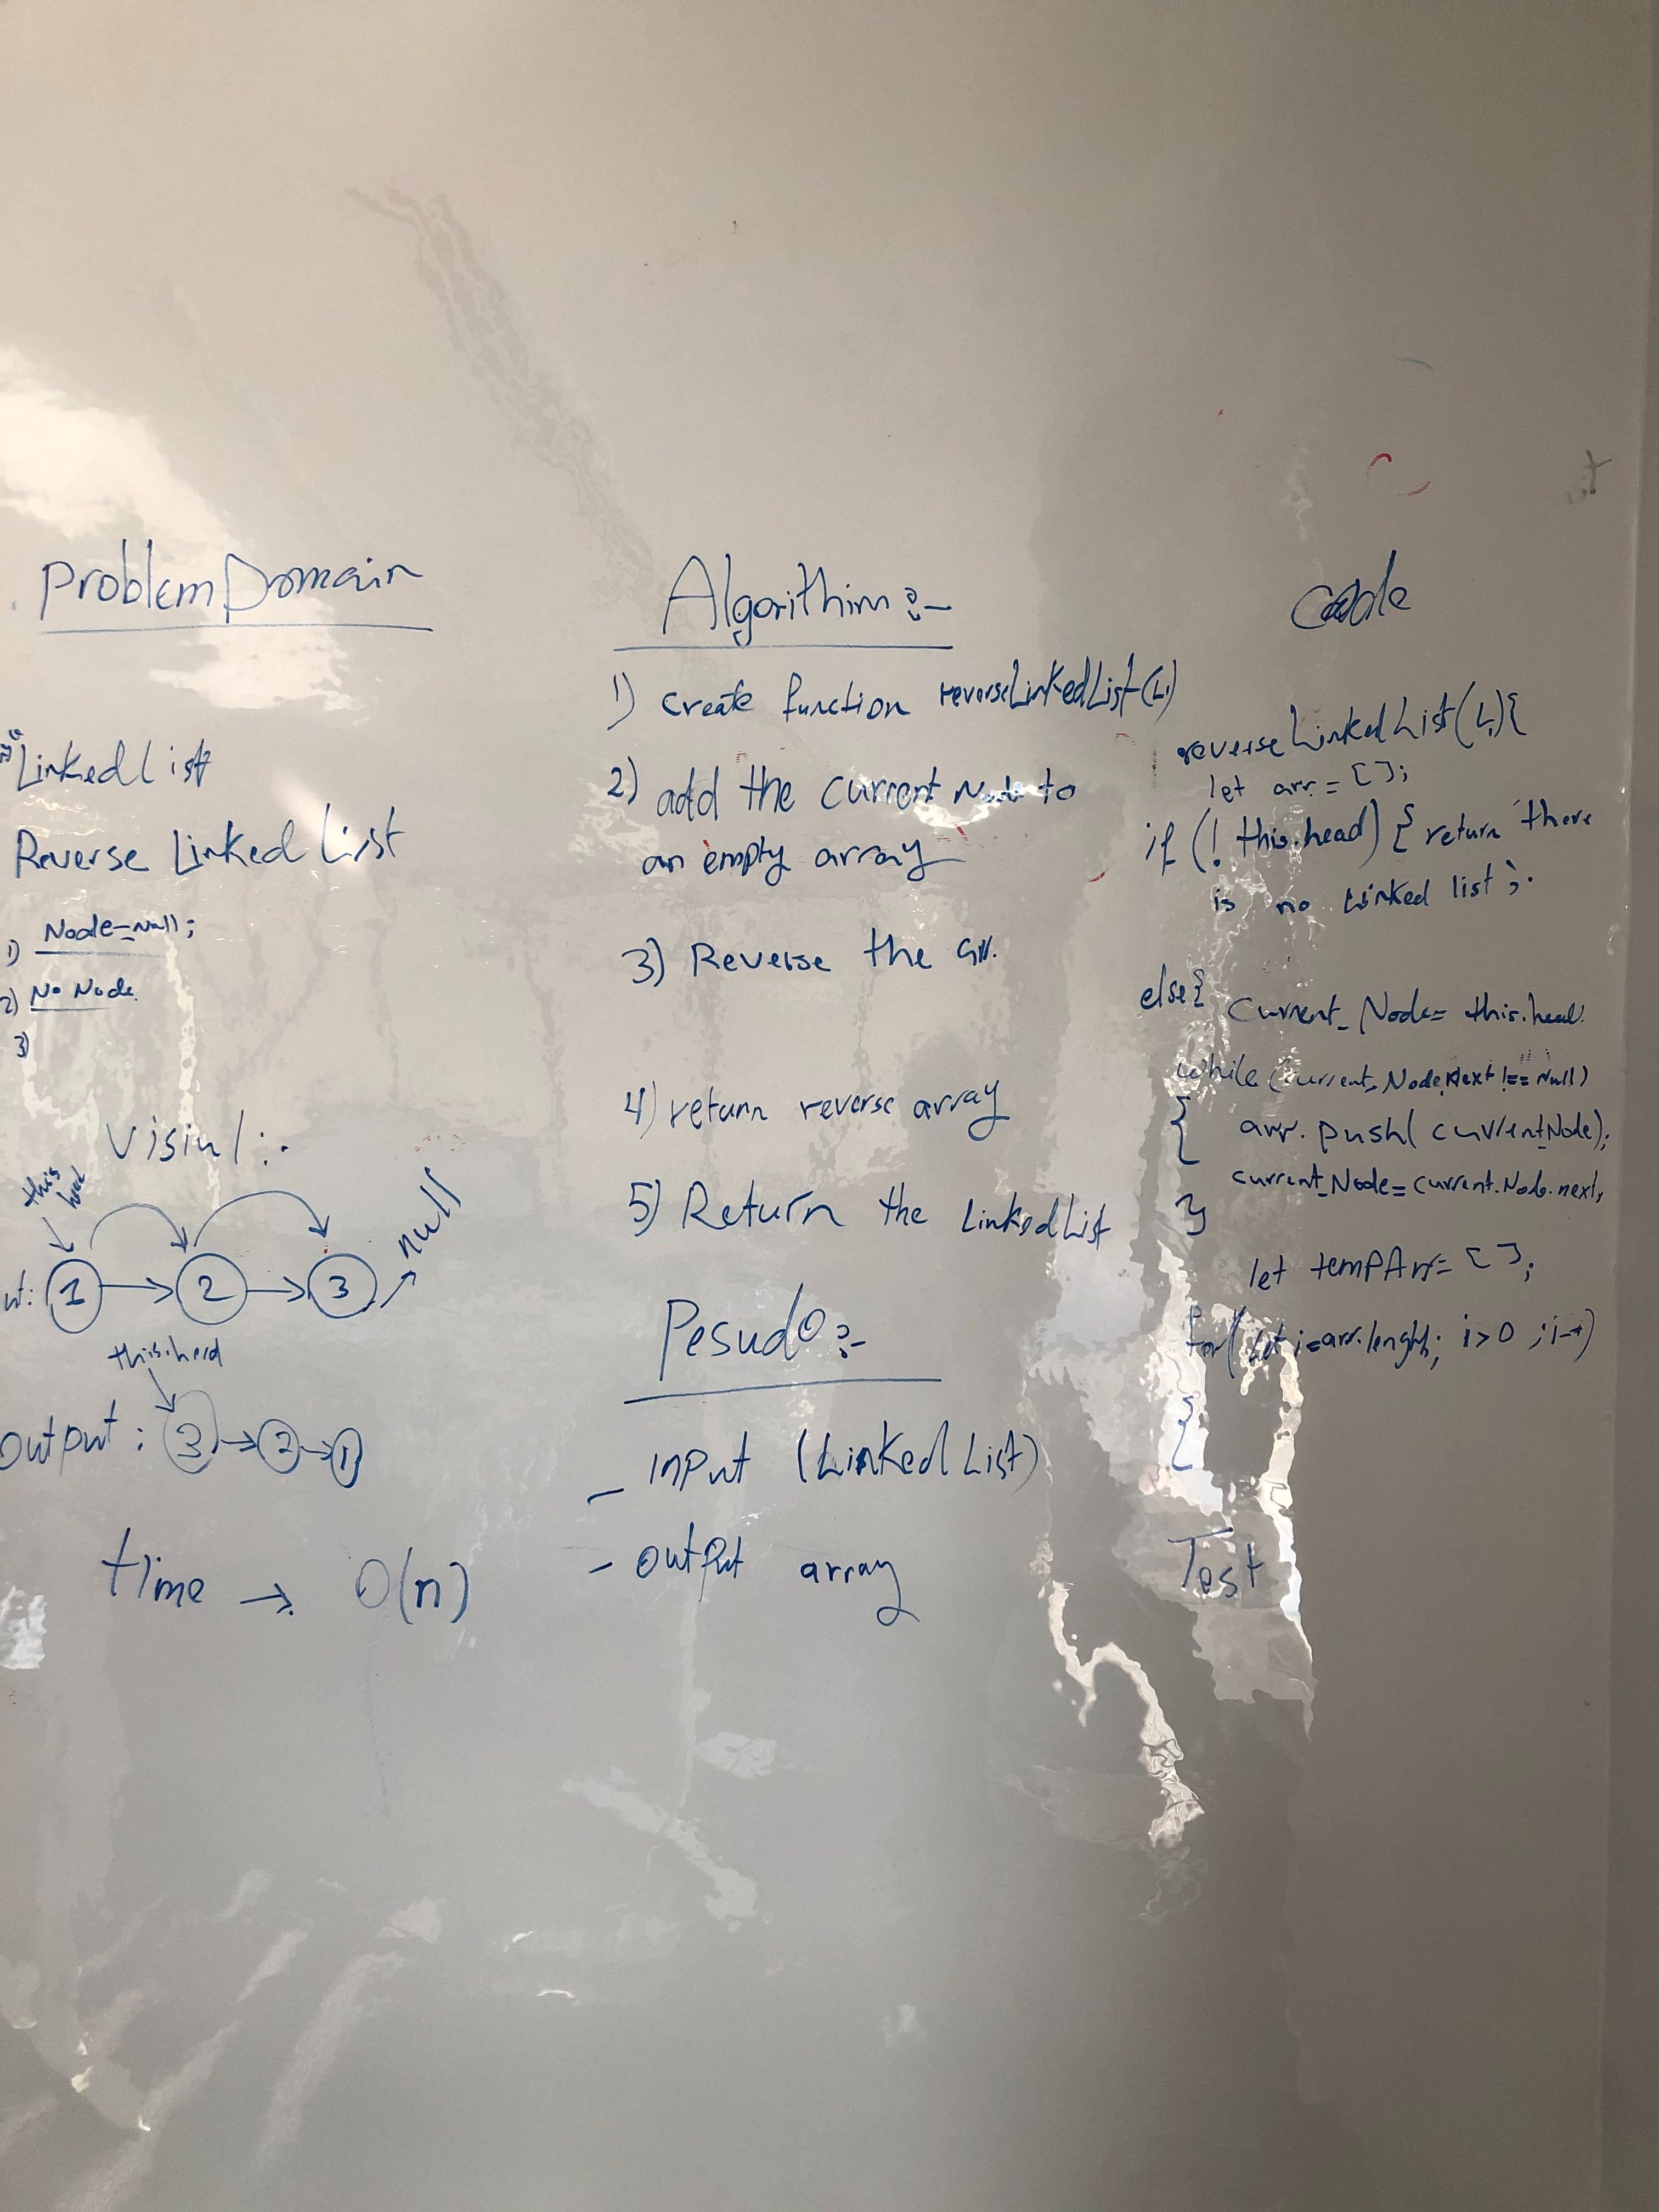 Problem Domain
LinkedList
Reverse Linked List
1) Node=null;
2) No Node
3)
Visiul:-
this
head
1 → 2 → 3 → null
this.head
output: 3 → 2 → 1
time → O(n)
Algorithim:-
1) create function reverseLinkedList(L)
2) add the current Node to
an empty array
3) Reverse the arr.
4) return reverse array
5) Return the LinkedList
Pesudo:-
- input (LinkedList)
- output array
code
reverseLinkedList(L){
let arr = [];
if (! this.head) { return 'there
is no Linked list';
else{ Current_Node= this.head
while (current_Node.Next !== Null)
{ arr.push( currentNode);
current_Node=current.Node.next;
}
let tempArr= [];
for( let i=arr.lenght; i>0 ;i--)
{
Test